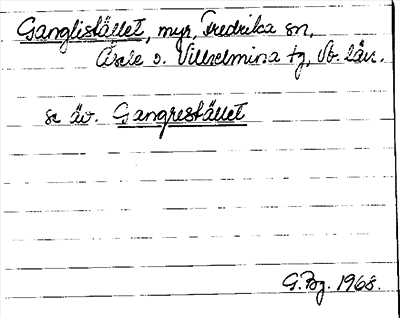 Ganglistället, myr, Fredrika sn,
Åsele o. Vilhelmina tg, Vb. län.
se äv. Gangrestället
G.Bg. 1968.